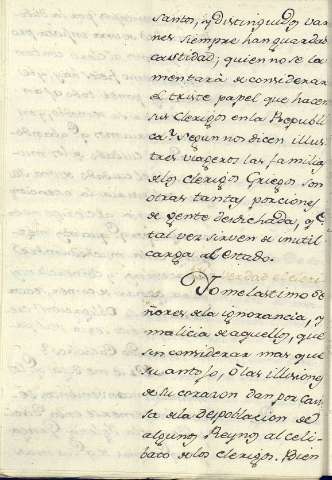 santos, y distinguidos varo
nes siempre han guardado
castidad; quien no se la
mentarà de considerar
el triste papel que hacen
sus Clerigos en la Republi
ca? Segun nos dicen illus
tres viageros las familias
de los Clerigos Griegos son
otras tantas porciones
de gente desechada, y q.e
tal vez sirven de inutil
carga al Estado.
Yo me lastimo Se
ñores de la ignorancia, y
malicia de aquellos, que
sin considerar mas que
su antojo, ò las illusiones
de su corazon dan por cau
sa de la despoblacion de
algunos Reynos al celi
bato de los Clerigos. Bien